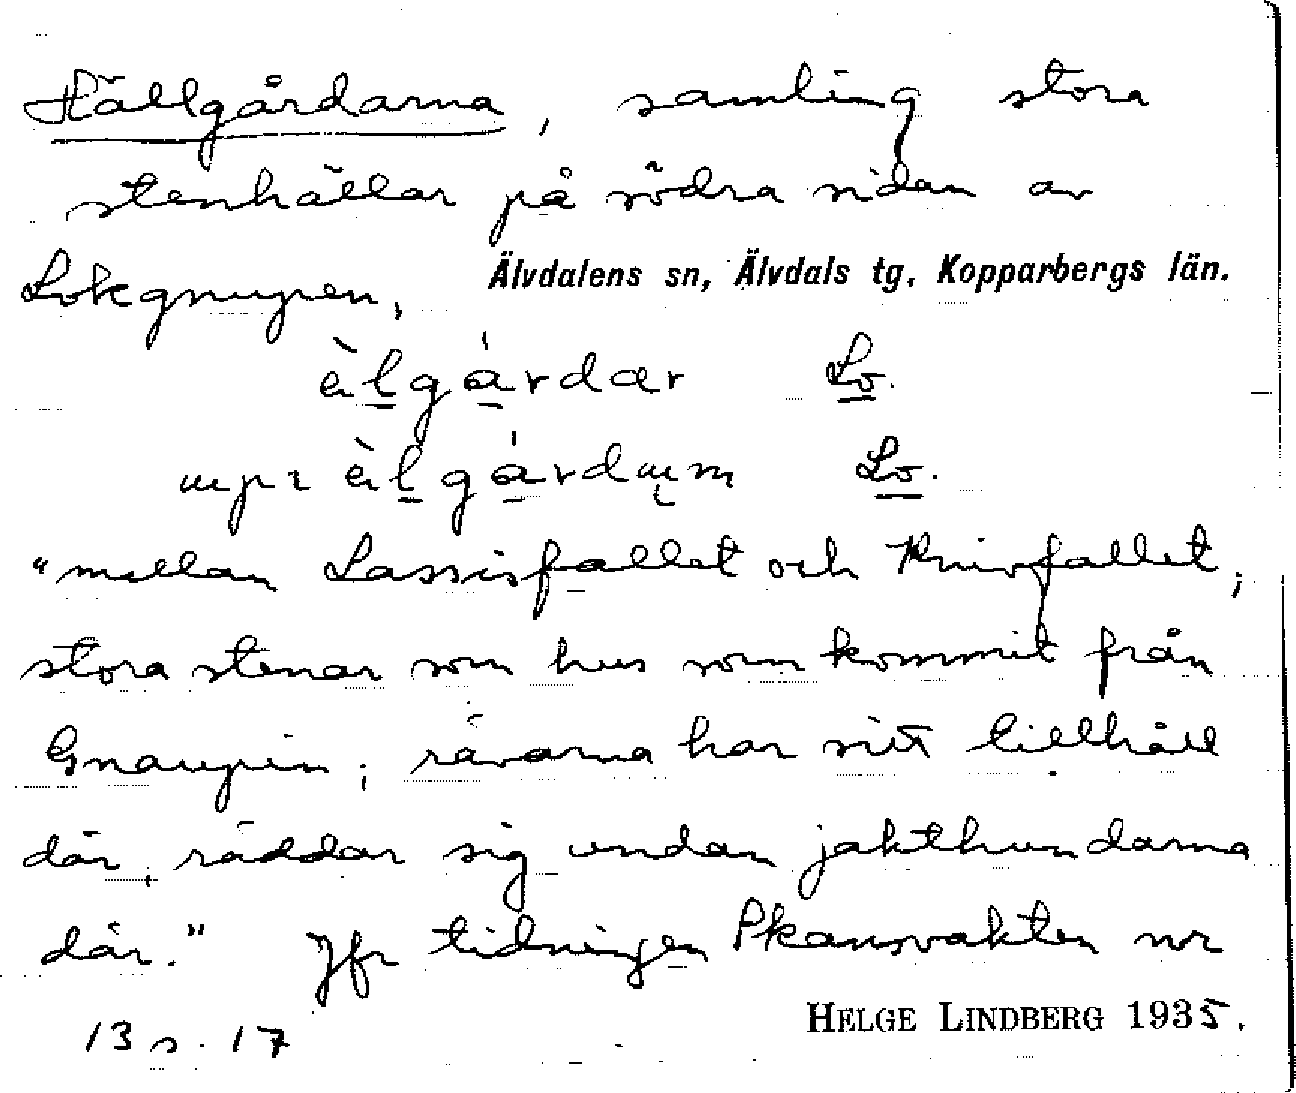 Hällgårdarna, samling stora
stenhällar på södra sidan av
Lokgnupen,
Älvdalens sn, Älvdals tg, Kopparbergs län.
Lo.
Lo.
"mellan Lassisfallet och Knivfallet;
stora stenar som hus som kommit från
Gnaupin; rävarna har sitt tillhåll
där, räddar sig undan jakthundarna
där." Jfr tidningen Skansvakten nr
13 s. 17
HELGE LINDBERG 1935.